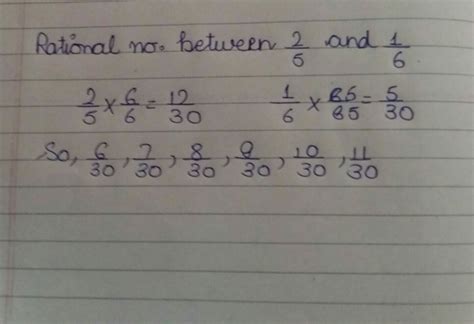 Rational no. between 2/5 and 1/6
2/5 × 6/6 = 12/30 1/6 × 5/5 = 5/30
So, 6/30, 7/30, 8/30, 9/30, 10/30, 11/30